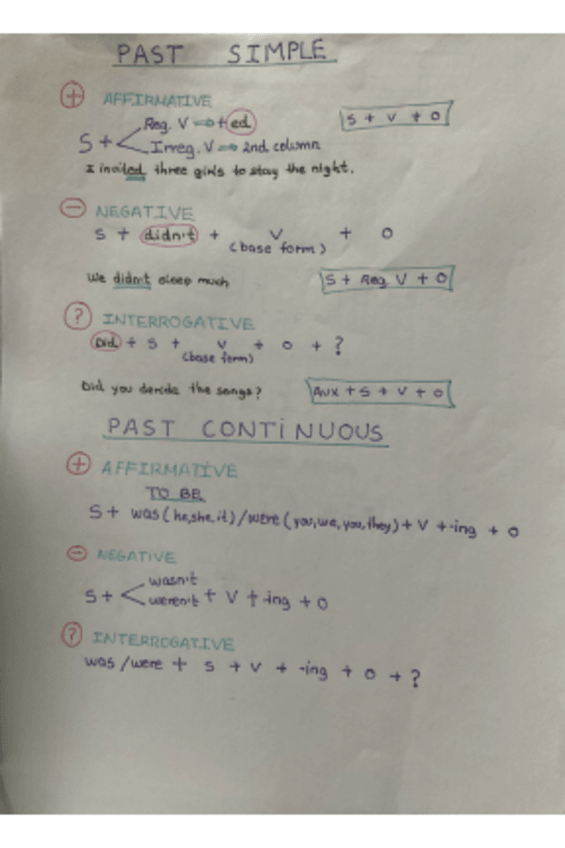 PAST SIMPLE
+ AFFIRMATIVE
Reg. V => + ed
S + V + O
S +
Irreg. V => 2nd column
I invited three girls to stay the night.
- NEGATIVE
S + didn't + V + O
(base form)
We didn't sleep much
S + Reg. V + O
? INTERROGATIVE
Did + S + V + O + ?
(base form)
Did you decide the songs?
Aux + S + V + O
PAST CONTINUOUS
+ AFFIRMATIVE
TO BE
S + was (he, she, it) / were (you, we, you, they) + V + -ing + O
- NEGATIVE
wasn't
S + weren't + V + -ing + O
? INTERROGATIVE
was / were + S + V + -ing + O + ?